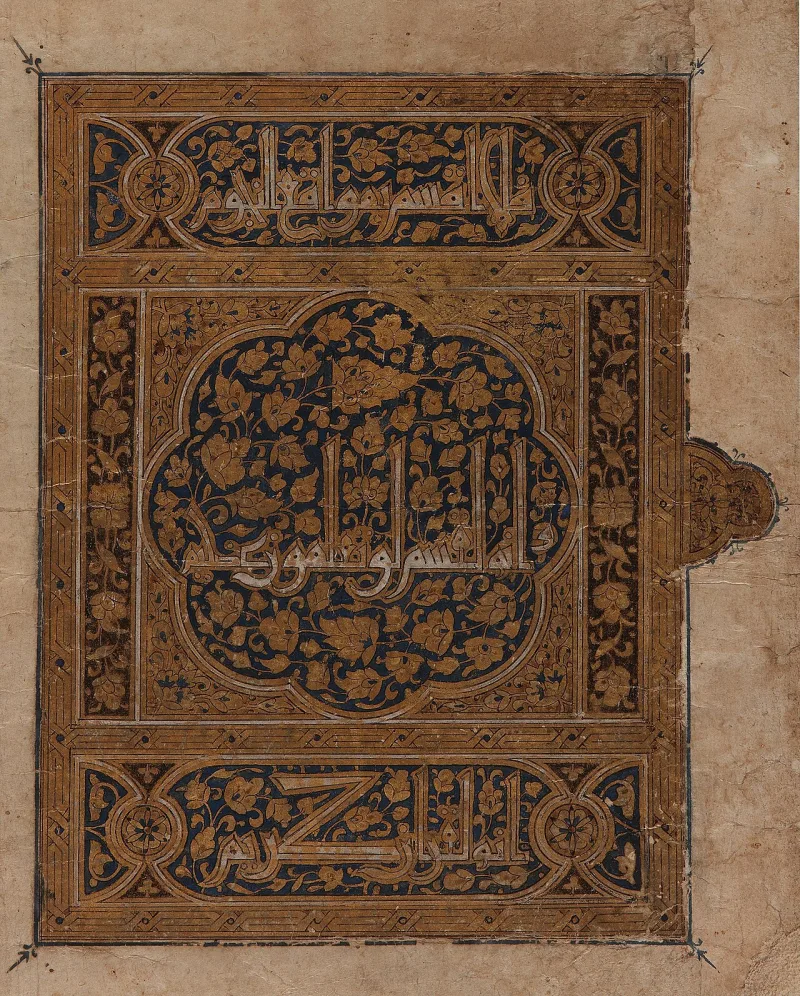 فلا اقسم بمواقع النجوم
وانه لقسم لو تعلمون عظيم
انه لقران كريم